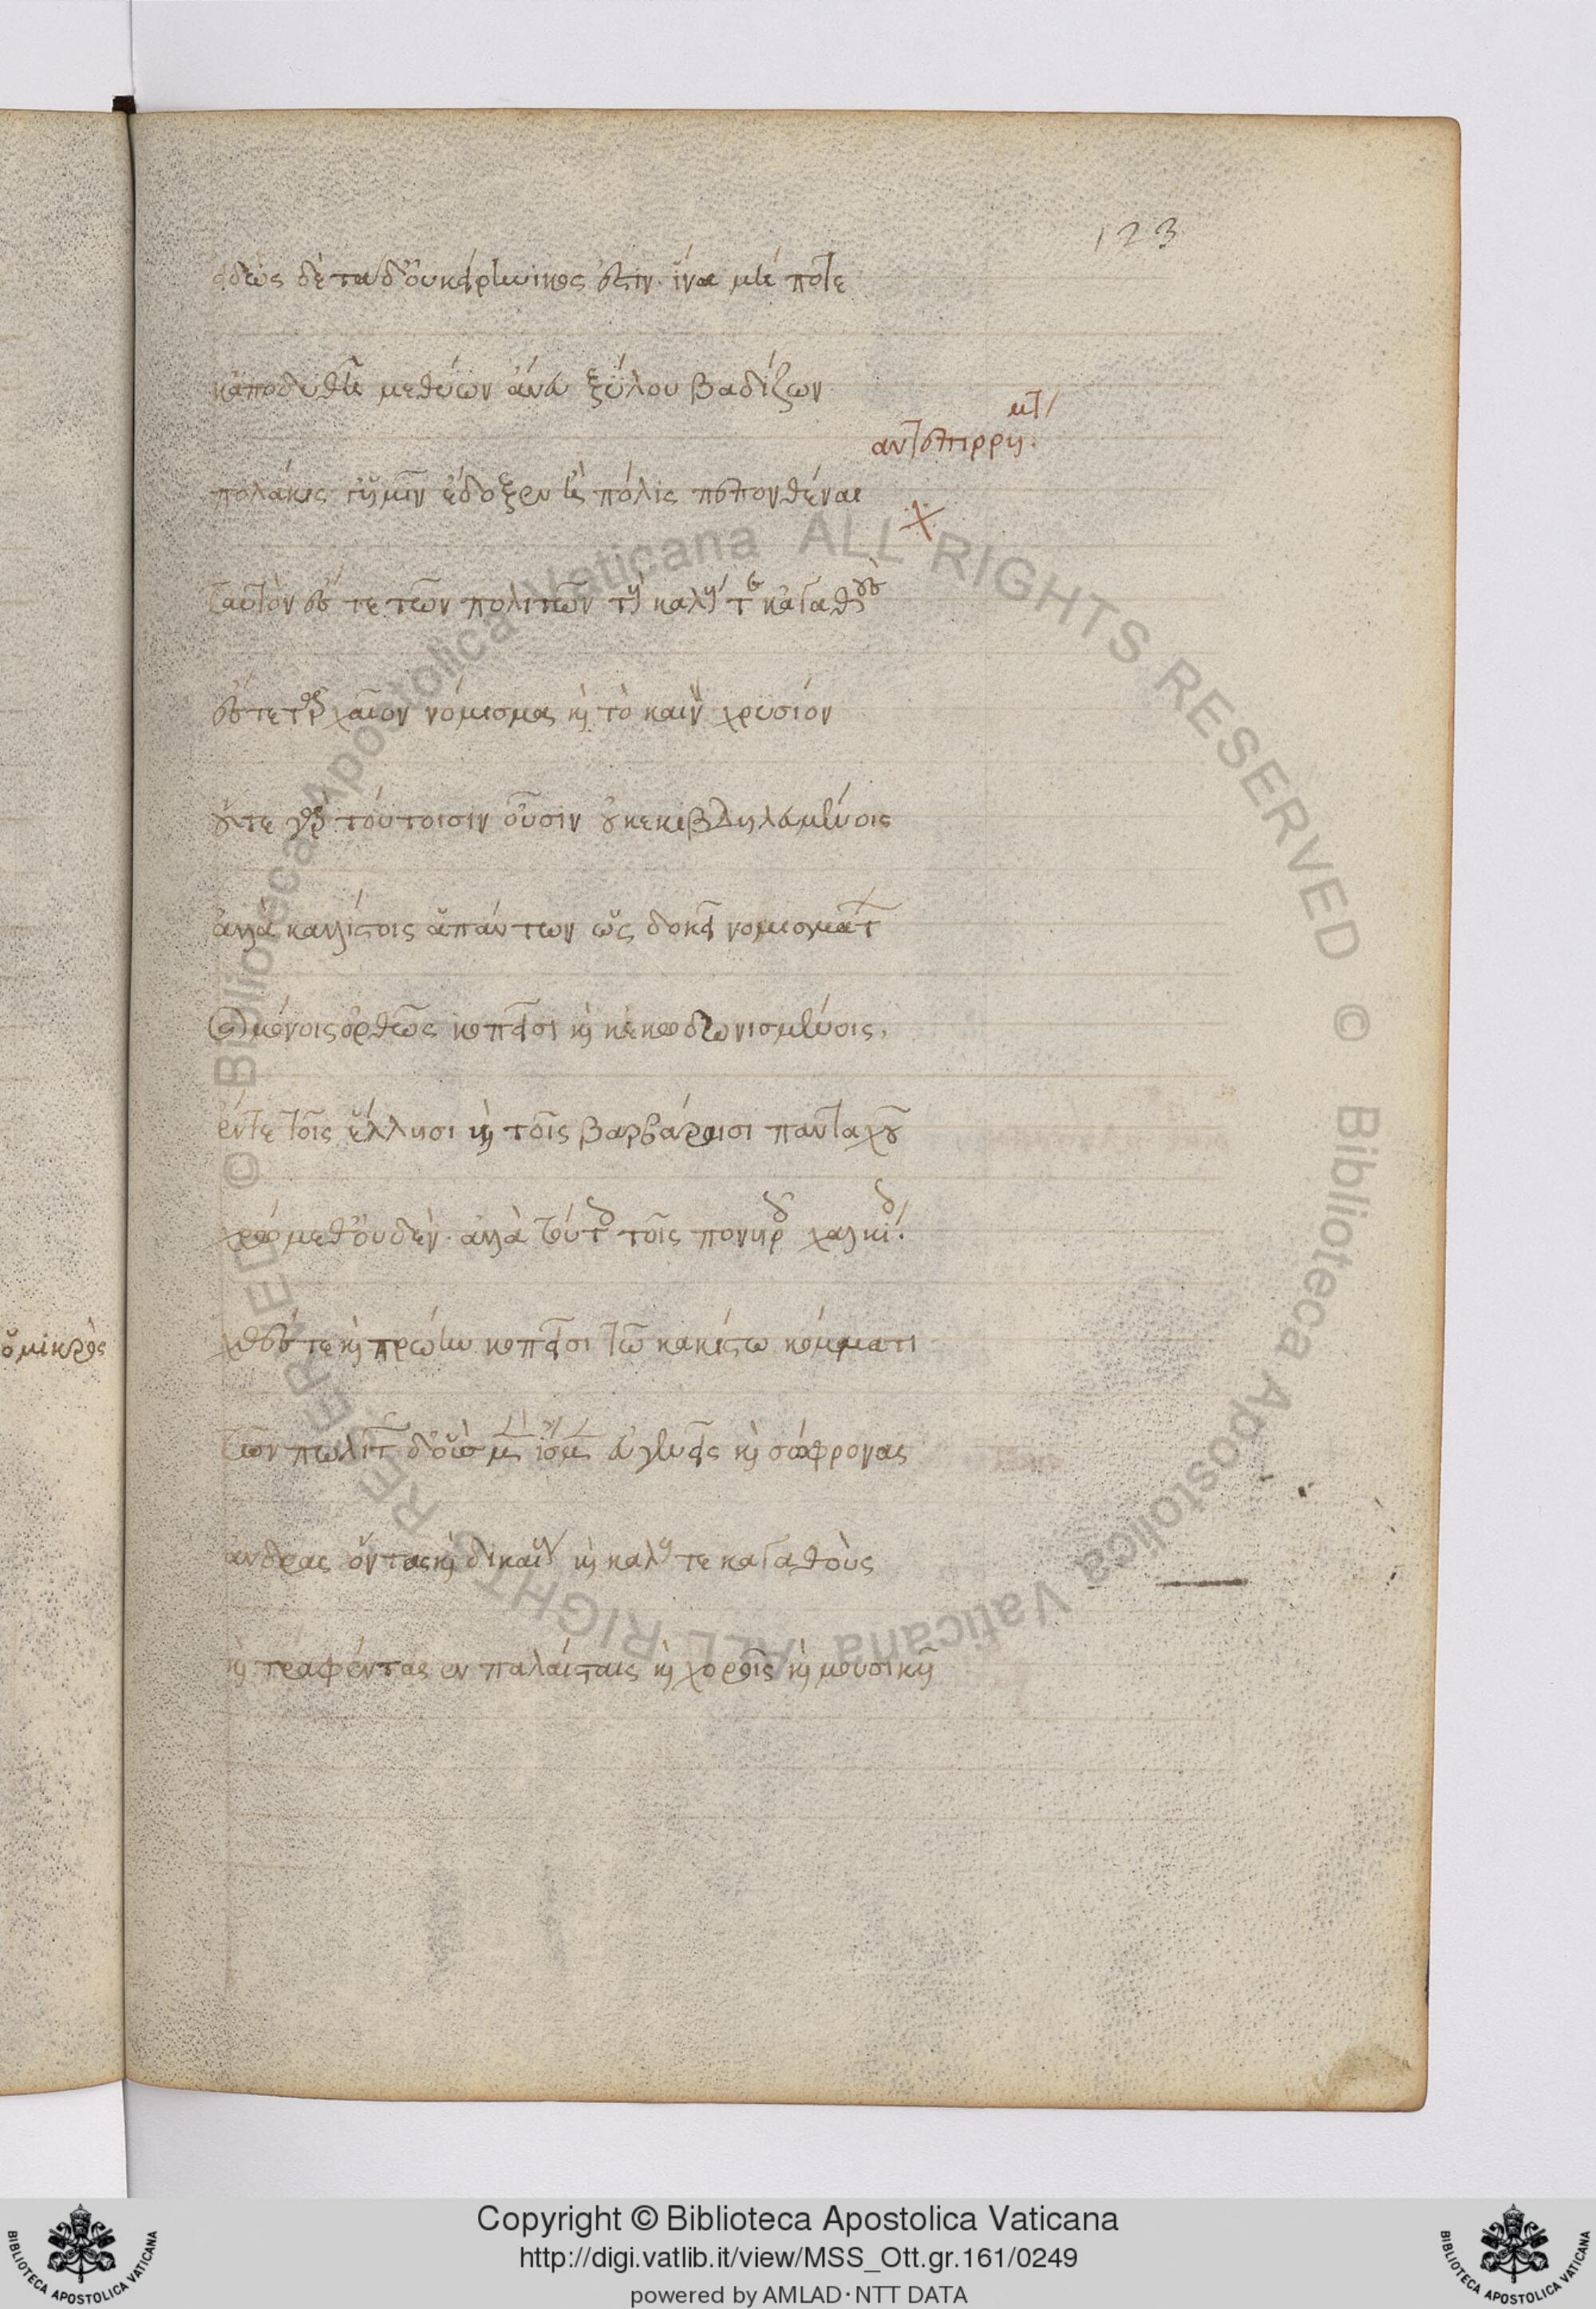 123
εἰδὼς δὲ τάδ' οὐκ εἰρηνικός ἐστιν· ἵνα μή ποτε
κἀποδυθῆ μεθύων ἄνευ ξύλου βαδίζων
ἀντεπίρρημα
πολάκις γ' ἡμῖν ἔδοξεν ἡ πόλις πεπονθέναι
ταυτὸν ἔς τε τῶν πολιτῶν τοὺς καλούς τε κἀγαθοὺς
ἔς τε τἀρχαῖον νόμισμα καὶ τὸ καινὸν χρυσίον
οὔτε γὰρ τούτοισιν οὖσιν οὐ κεκιβδηλευμένοις
ἀλλὰ καλλίστοις ἁπάντων ὡς δοκεῖ νομισμάτων
καὶ μόνοις ὀρθῶς κοπεῖσι καὶ κεκωδωνισμένοις,
ἔν τε τοῖς ἕλλησι καὶ τοῖς βαρβάροισι πανταχοῦ
χρώμεθ' οὐδέν· ἀλλὰ τούτοις τοῖς πονηροῖς χαλκίοις
χθές τε καὶ πρώην κοπεῖσι τῶ κακίστω κόμματι
τῶν πωλιτῶν δ' οὓς μὲν ἴσμεν εὐγενεῖς καὶ σώφρονας
ἄνδρας ὄντας καὶ δικαίους καὶ καλούς τε κἀγαθοὺς
καὶ τραφέντας εν παλαίστραις καὶ χοροῖς καὶ μουσικῆ
ὁ μικρὸς
© Biblioteca Apostolica Vaticana ALL RIGHTS RESERVED © Biblioteca Apostolica Vaticana ALL RIGHTS RESERVED
Copyright © Biblioteca Apostolica Vaticana
http://digi.vatlib.it/view/MSS_Ott.gr.161/0249
powered by AMLAD·NTT DATA
BIBLIOTECA APOSTOLICA VATICANA
BIBLIOTECA APOSTOLICA VATICANA